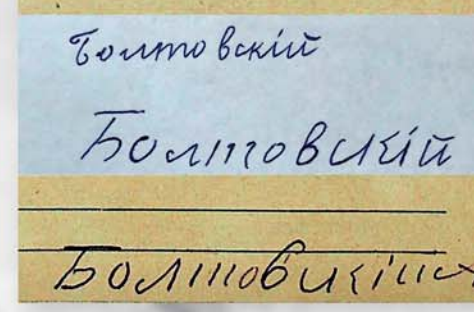 Болтовскій
Болтовскій
Болтовскій